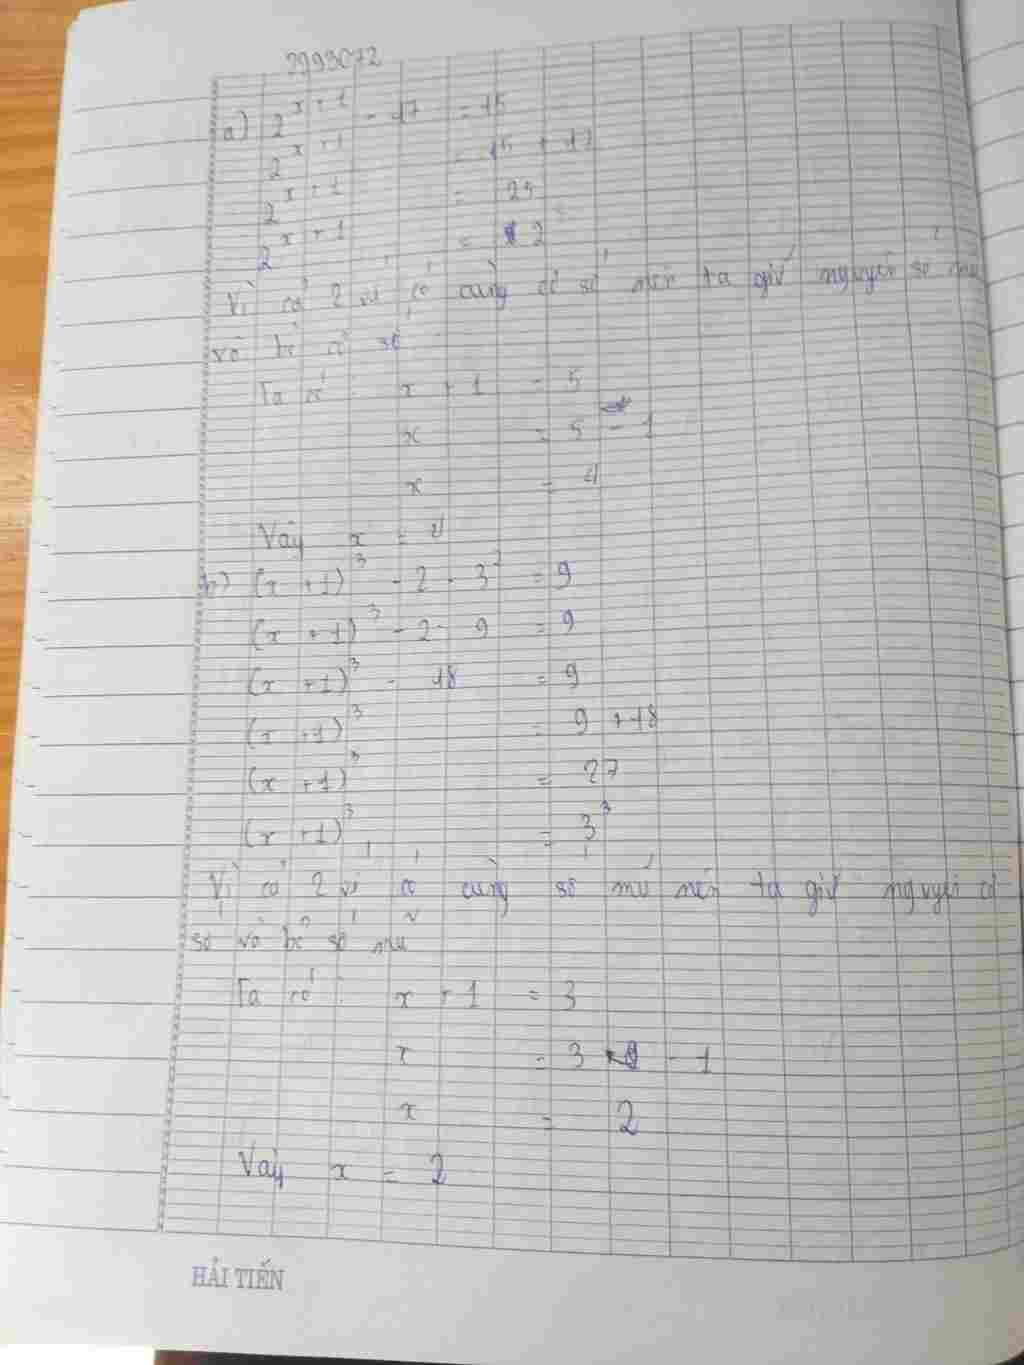 2993072
a) 2^{x+1} - 17 = 15
2^{x+1} = 15 + 17
2^{x+1} =
2^{x+1} = 2
Vì cả 2 vế có cùng số nên ta giữ nguyên số mũ
và bỏ số
Ta có : x + 1 = 5
x = 5 - 1
x = 4
Vậy x = 4
b) (x + 1)^3 - 2 . 3^2 = 9
(x + 1)^3 - 2 . 9 = 9
(x + 1)^3 - 18 = 9
(x + 1)^3 = 9 + 18
(x + 1)^3 = 27
(x + 1)^3 = 3^3
Vì cả 2 vế có cùng số mũ nên ta giữ nguyên cơ
số và bỏ số mũ
Ta có : x + 1 = 3
x = 3 - 1
x = 2
Vậy x = 2
HẢI TIẾN